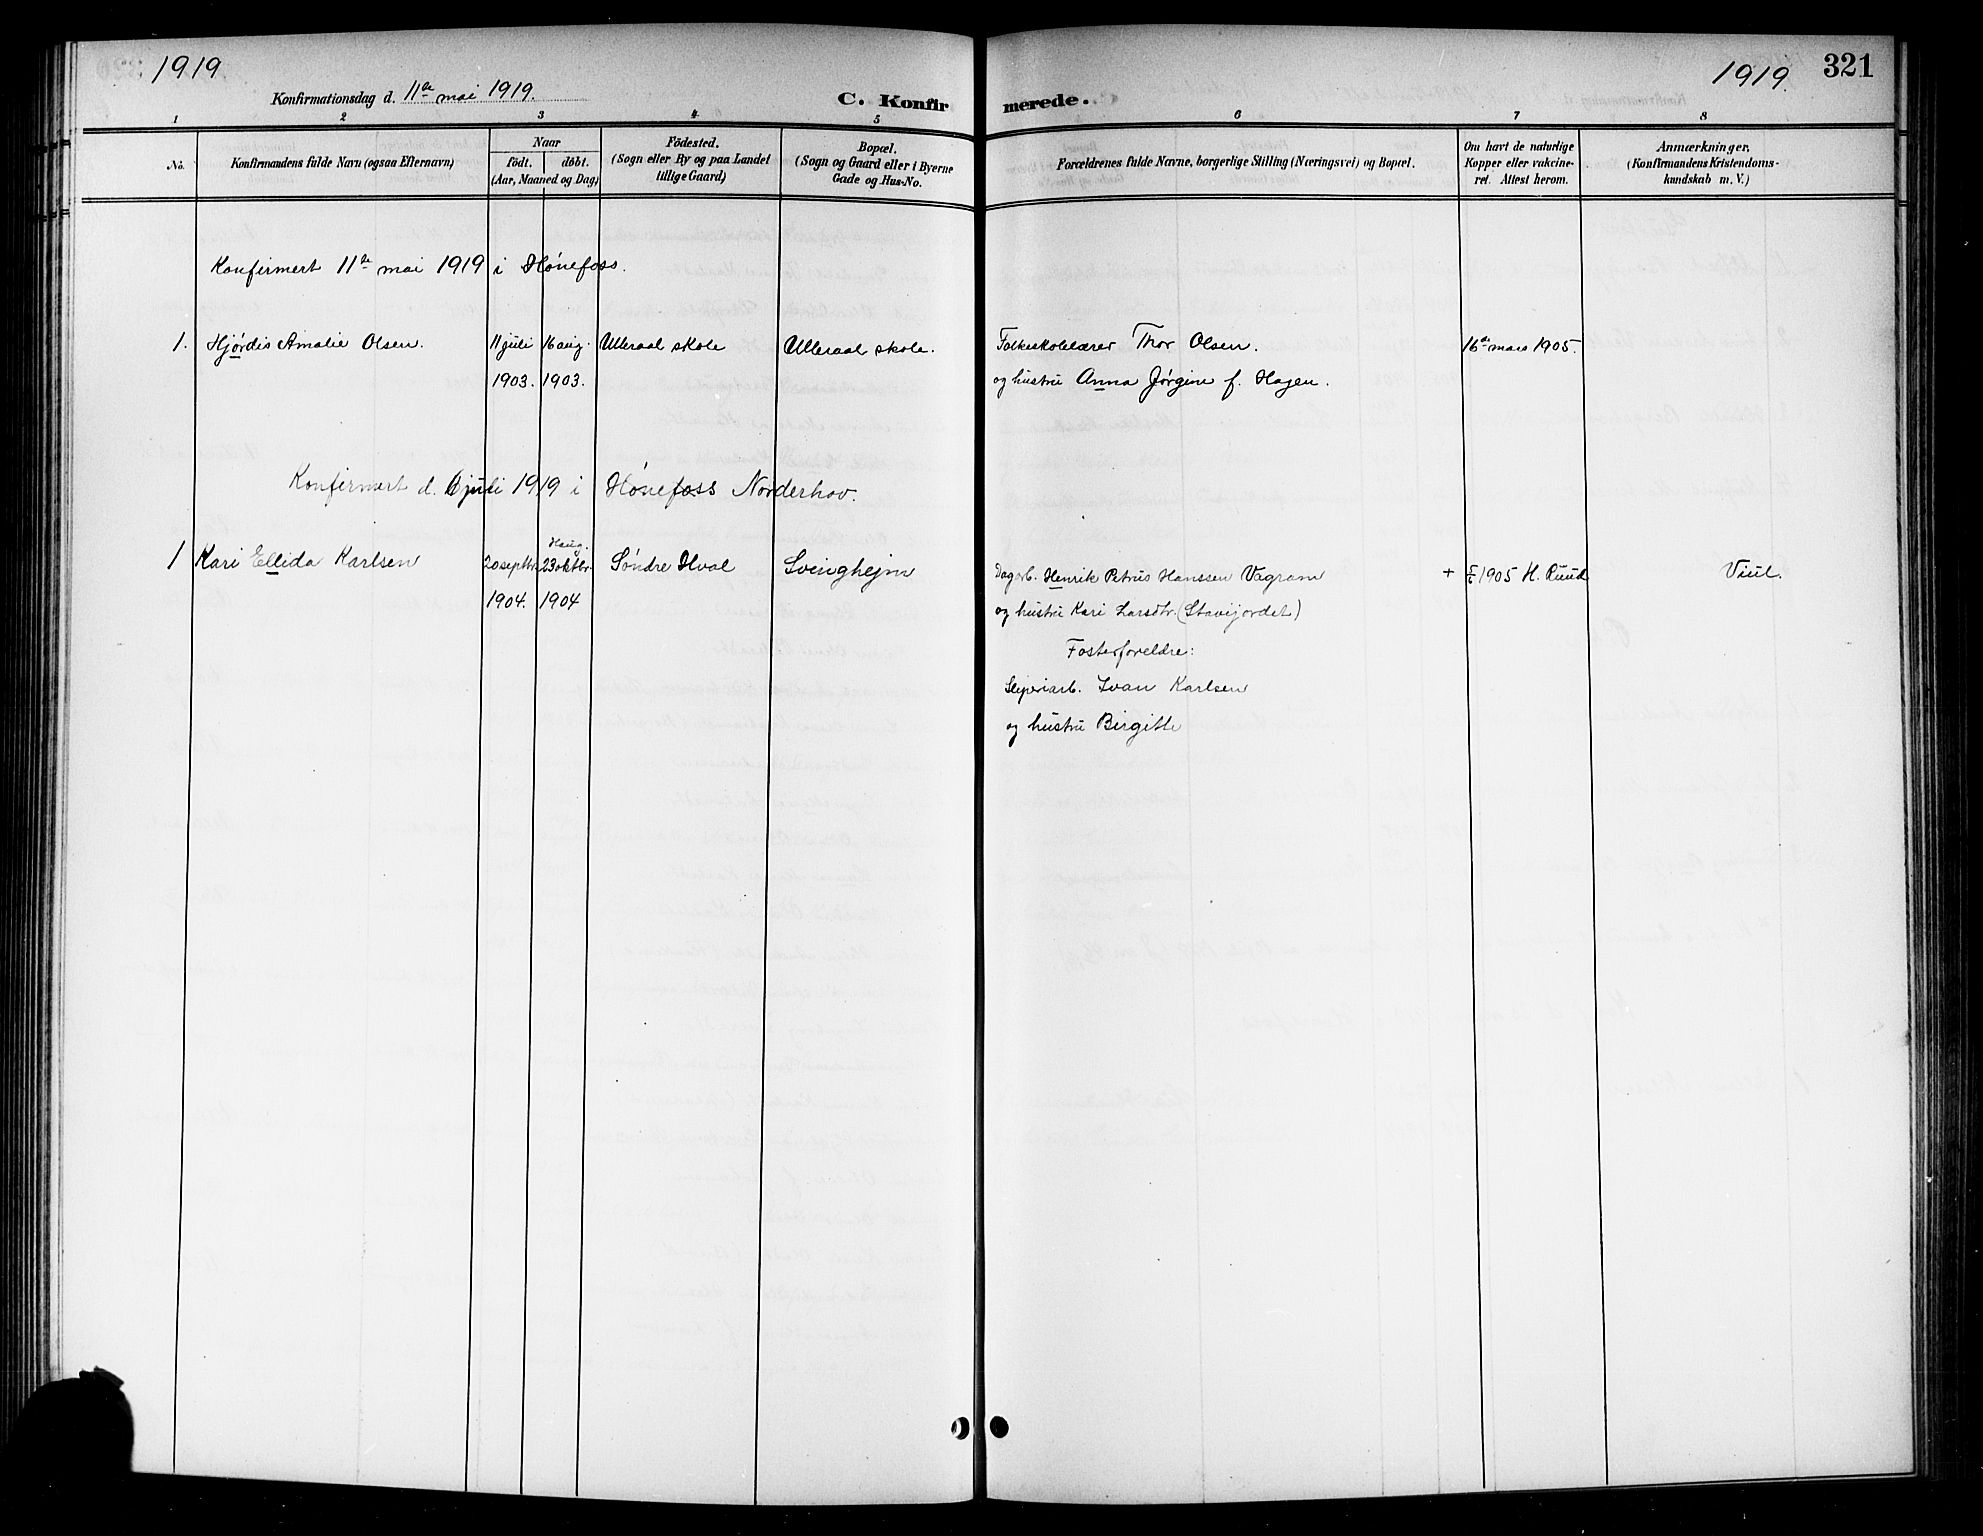 1919
1919.
321
Konfirmationsdag d. 11te mai 1919.
C. Konfirmerede.
1 2 3 4 5 6 7 8
No.
Konfirmandens fulde Navn (ogsaa Efternavn)
Naar
födt. döbt.
(Aar, Maaned og Dag)
Födested.
(Sogn eller By og paa Landet
tillige Gaard)
Bopæl.
(Sogn og Gaard eller i Byerne
Gade og Hus-No.
Forældrenes fulde Navne, borgerlige Stilling (Næringsvei) og Bopæl.
Om havt de naturlige
Kopper eller vakcine-
ret. Attest herom.
Anmærkninger.
(Konfirmandens Kristendoms-
kundskab m. V.)
Konfirmert 11te mai 1919 i Hónefoss.
1. Hjórdis Amalie Olsen. 11 juli 16 aug. Ulleraal skole Ulleraal skole. Folkeskolelærer Thor Olsen. 16de mars 1905.
1903. 1903. og hustru Anna Jórgine f. Hagen.
Konfirmert d. juli 1919 i Hónefoss Norderhov.
Haug.
1 Kari Ellida Karlsen 20 septbr. 23 oktbr. Sóndre Hval Svinghejm Dagarb. Henrik Petrus Hanssen Vagram + 1905 H. Ruud Viul.
1904. 1904 og hustru Kari Larsdtr. (Stavijordet)
Fosterforeldre:
Sliperiarb. Ivan Karlsen
og hustru Birgitte